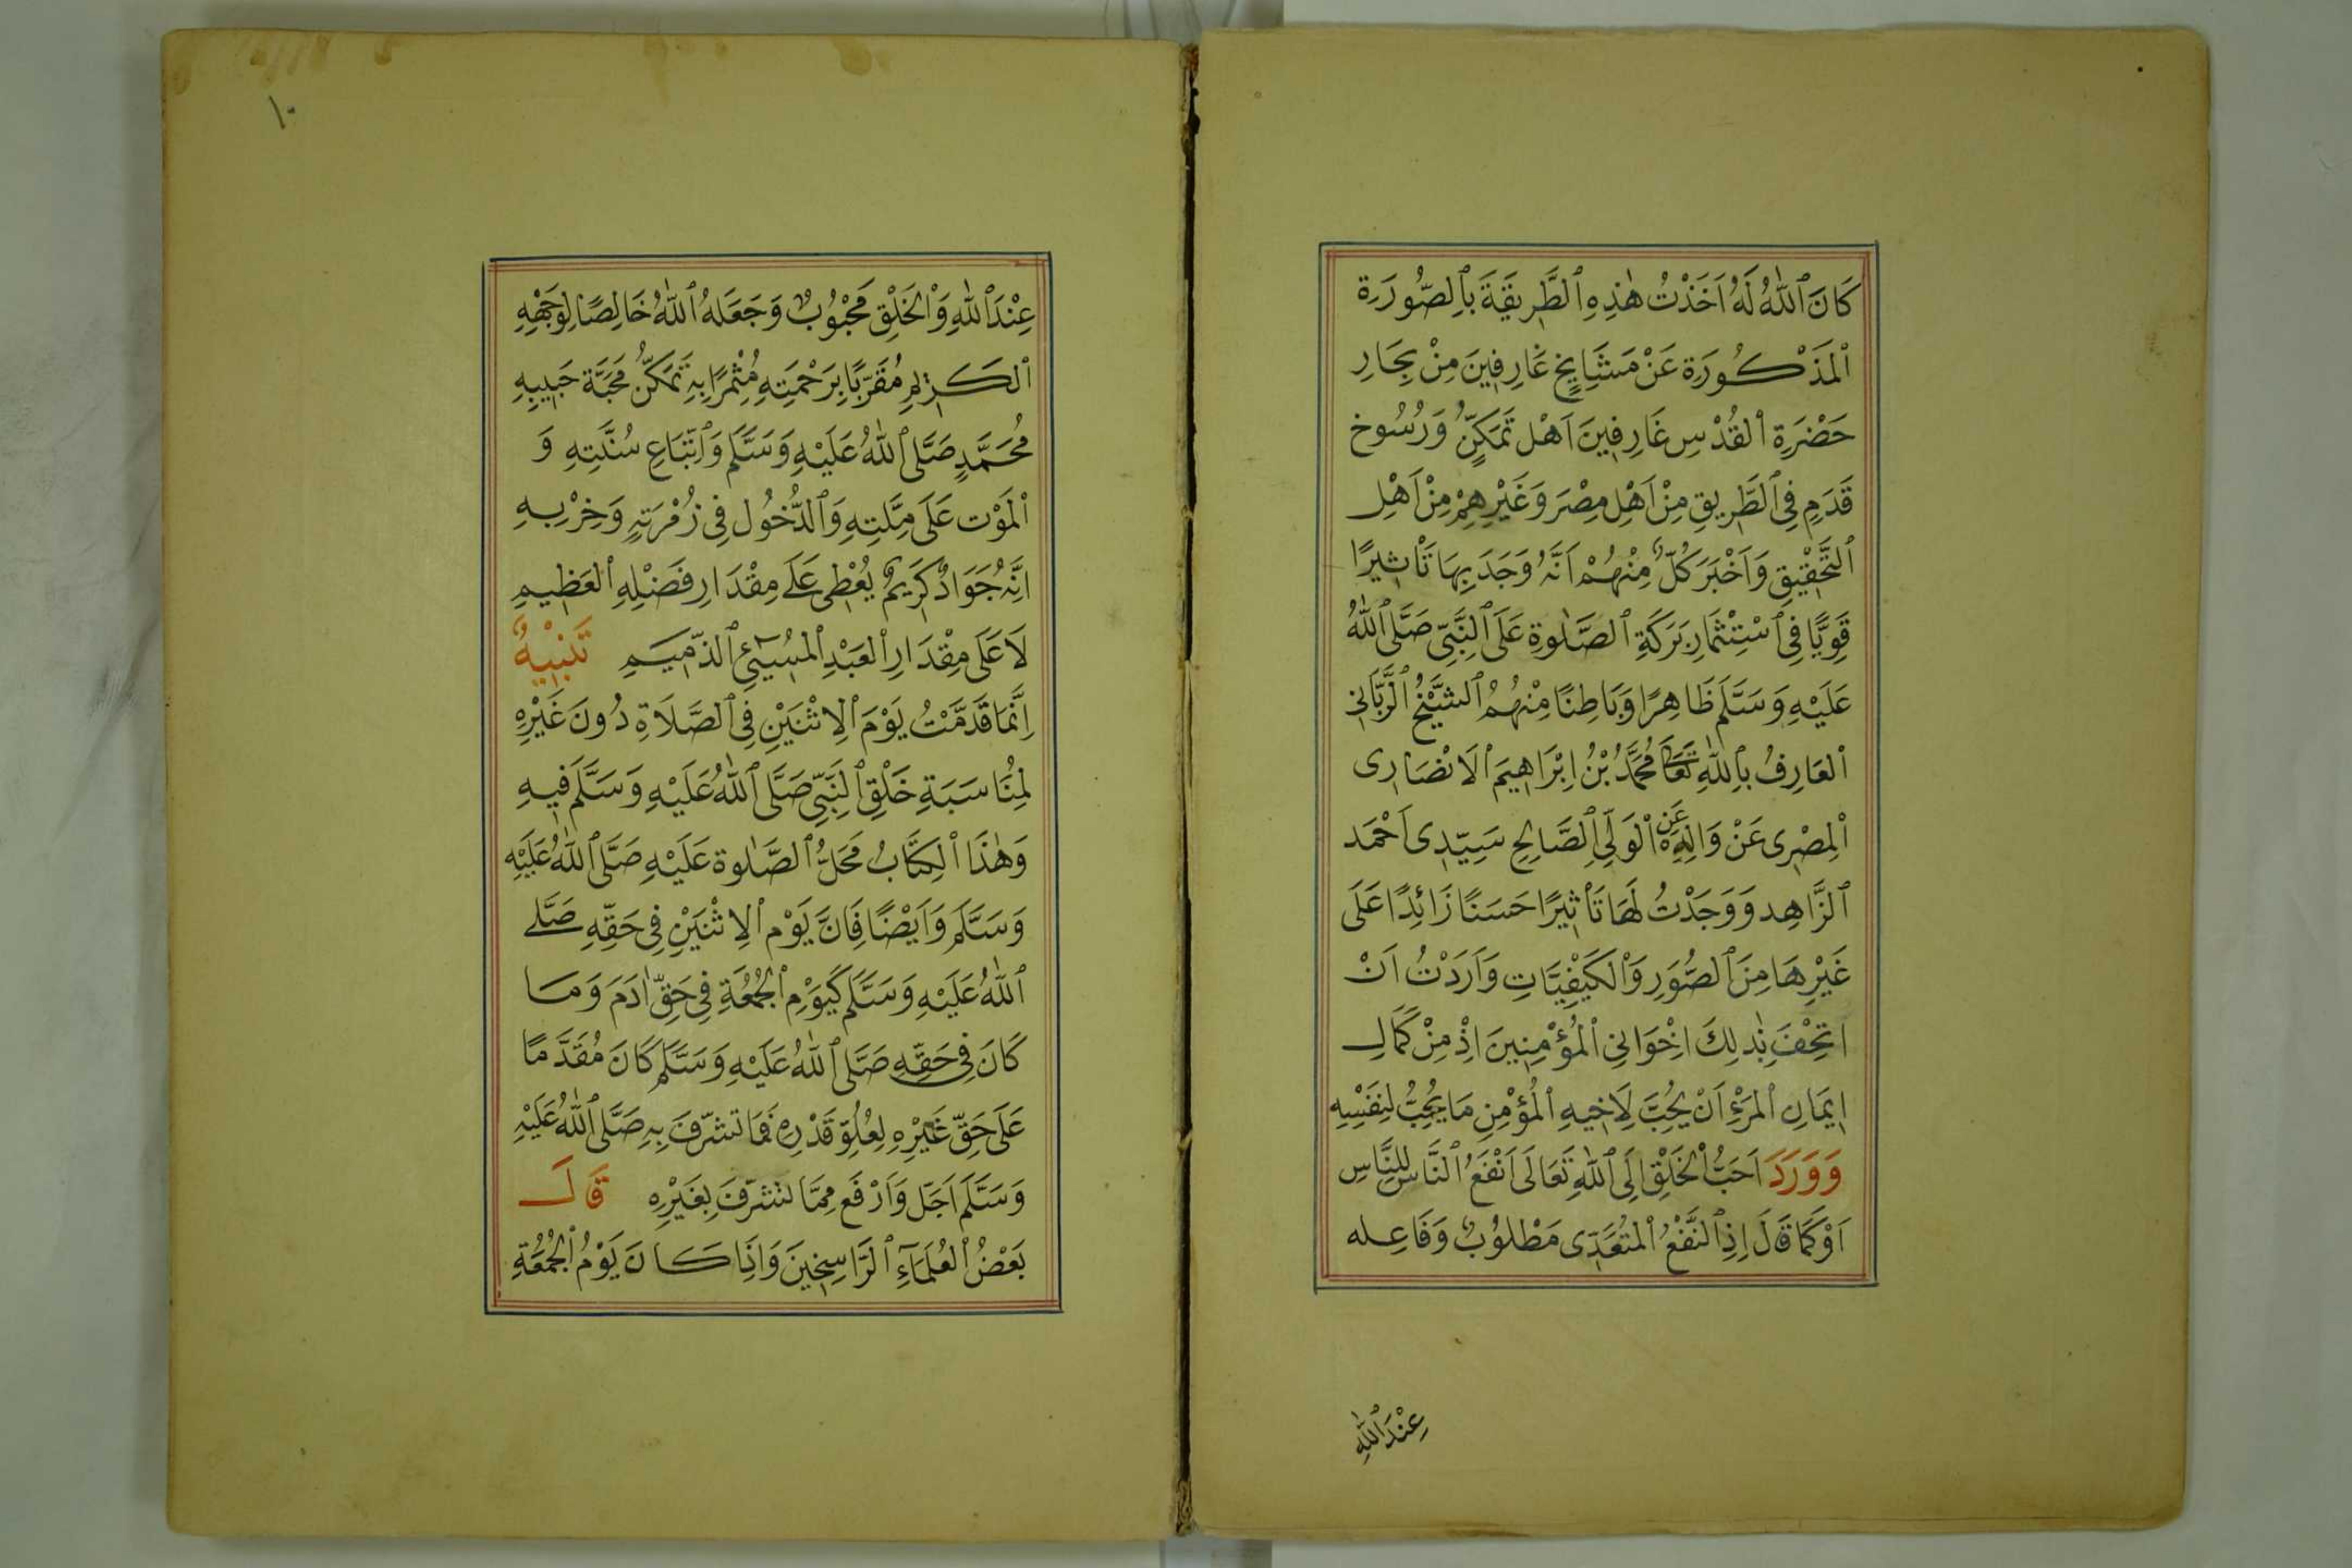 كَانَ ٱللّٰهُ لَهُ اَخَذْتُ هٰذِهِ ٱلطَّرِيقَةَ بِٱلصُّورَةِ
ٱلْمَذْكُورَةِ عَنْ مَشَايِخٍ عَارِفِينَ مِنْ بِحَارِ
حَضْرَةِ ٱلْقُدْسِ غَارِفِينَ اَهْلِ تَمَكُّنٍ وَرُسُوخِ
قَدَمٍ فِي ٱلطَّرِيقِ مِنْ اَهْلِ مِصْرَ وَغَيْرِهِمْ مِنْ اَهْلِ
ٱلتَّحْقِيقِ وَاَخْبَرَ كُلٌّ مِنْهُمْ اَنَّهُ وَجَدَ بِهَا تَأْثِيرًا
قَوِيًّا فِي ٱسْتِثْمَارِ بَرَكَةِ ٱلصَّلٰوةِ عَلَى ٱلنَّبِيِّ صَلَّى ٱللّٰهُ
عَلَيْهِ وَسَلَّمَ ظَاهِرًا وَبَاطِنًا مِنْهُمُ ٱلشَّيْخُ ٱلرَّبَّانِي
ٱلْعَارِفُ بِٱللّٰهِ تَعَالَى مُحَمَّدُ بْنُ اِبْرَاهِيمَ ٱلْاَنْصَارِى
ٱلْمِصْرِى عَنْ وَالِدِهِ عَنِ ٱلْوَلِيِّ ٱلصَّالِحِ سَيِّدِى اَحْمَد
ٱلزَّاهِد وَوَجَدْتُ لَهَا تَأْثِيرًا حَسَنًا زَائِدًا عَلَى
غَيْرِهَا مِنَ ٱلصُّوَرِ وَٱلْكَيْفِيَّاتِ وَاَرَدْتُ اَنْ
اُتْحِفَ بِذٰلِكَ اِخْوَانِي ٱلْمُؤْمِنِينَ اِذْ مِنْ كَمَالِ
اِيمَانِ ٱلْمَرْءِ اَنْ يُحِبَّ لِاَخِيهِ ٱلْمُؤْمِنِ مَا يُحِبُّ لِنَفْسِهِ
وَوَرَدَ اَحَبُّ ٱلْخَلْقِ اِلَى ٱللّٰهِ تَعَالَى اَنْفَعُ ٱلنَّاسِ لِلنَّاسِ
اَوْ كَمَا قَالَ اِذِ ٱلنَّفْعُ ٱلْمُتَعَدِّى مَطْلُوبٌ وَفَاعِله
عِنْدَ ٱللّٰهِ
١٠
عِنْدَ ٱللّٰهِ وَٱلْخَلْقِ مَحْبُوبٌ وَجَعَلَهُ ٱللّٰهُ خَالِصًا لِوَجْهِهِ
ٱلْكَرِيمِ مُقَرِّبًا بِرَحْمَتِهِ مُثْمِرًا بِهِ تَمَكُّنَ مَحَبَّةِ حَبِيبِهِ
مُحَمَّدٍ صَلَّى ٱللّٰهُ عَلَيْهِ وَسَلَّمَ وَٱتِّبَاعِ سُنَّتِهِ وَ
ٱلْمَوْتِ عَلَى مِلَّتِهِ وَٱلدُّخُولِ فِي زُمْرَتِهِ وَحِزْبِهِ
اِنَّهُ جَوَادٌ كَرِيمٌ يُعْطِى عَلَى مِقْدَارِ فَضْلِهِ ٱلْعَظِيمِ
لَا عَلَى مِقْدَارِ ٱلْعَبْدِ ٱلْمُسِيْئِ ٱلذَّمِيمِ تَنْبِيهٌ
اِنَّمَا قَدَّمْتُ يَوْمَ ٱلْاِثْنَيْنِ فِي ٱلصَّلَاةِ دُونَ غَيْرِهِ
لِمُنَاسَبَةِ خَلْقِ ٱلنَّبِيِّ صَلَّى ٱللّٰهُ عَلَيْهِ وَسَلَّمَ فِيهِ
وَهٰذَا ٱلْكِتَابُ مَحَلُّ ٱلصَّلٰوةِ عَلَيْهِ صَلَّى ٱللّٰهُ عَلَيْهِ
وَسَلَّمَ وَاَيْضًا فَاِنَّ يَوْمَ ٱلْاِثْنَيْنِ فِي حَقِّهِ صَلَّى
ٱللّٰهُ عَلَيْهِ وَسَلَّمَ كَيَوْمِ ٱلْجُمُعَةِ فِي حَقِّ اٰدَمَ وَمَا
كَانَ فِي حَقِّهِ صَلَّى ٱللّٰهُ عَلَيْهِ وَسَلَّمَ كَانَ مُقَدَّمًا
عَلَى حَقِّ غَيْرِهِ لِعُلُوِّ قَدْرِهِ فَمَا تَشَرَّفَ بِهِ صَلَّى ٱللّٰهُ عَلَيْهِ
وَسَلَّمَ اَجَلّ وَاَرْفَع مِمَّا تَشَرَّفَ بِغَيْرِهِ قَالَ
بَعْضُ ٱلْعُلَمَآءِ ٱلرَّاسِخِينَ وَاِذَا كَانَ يَوْمُ ٱلْجُمُعَةِ